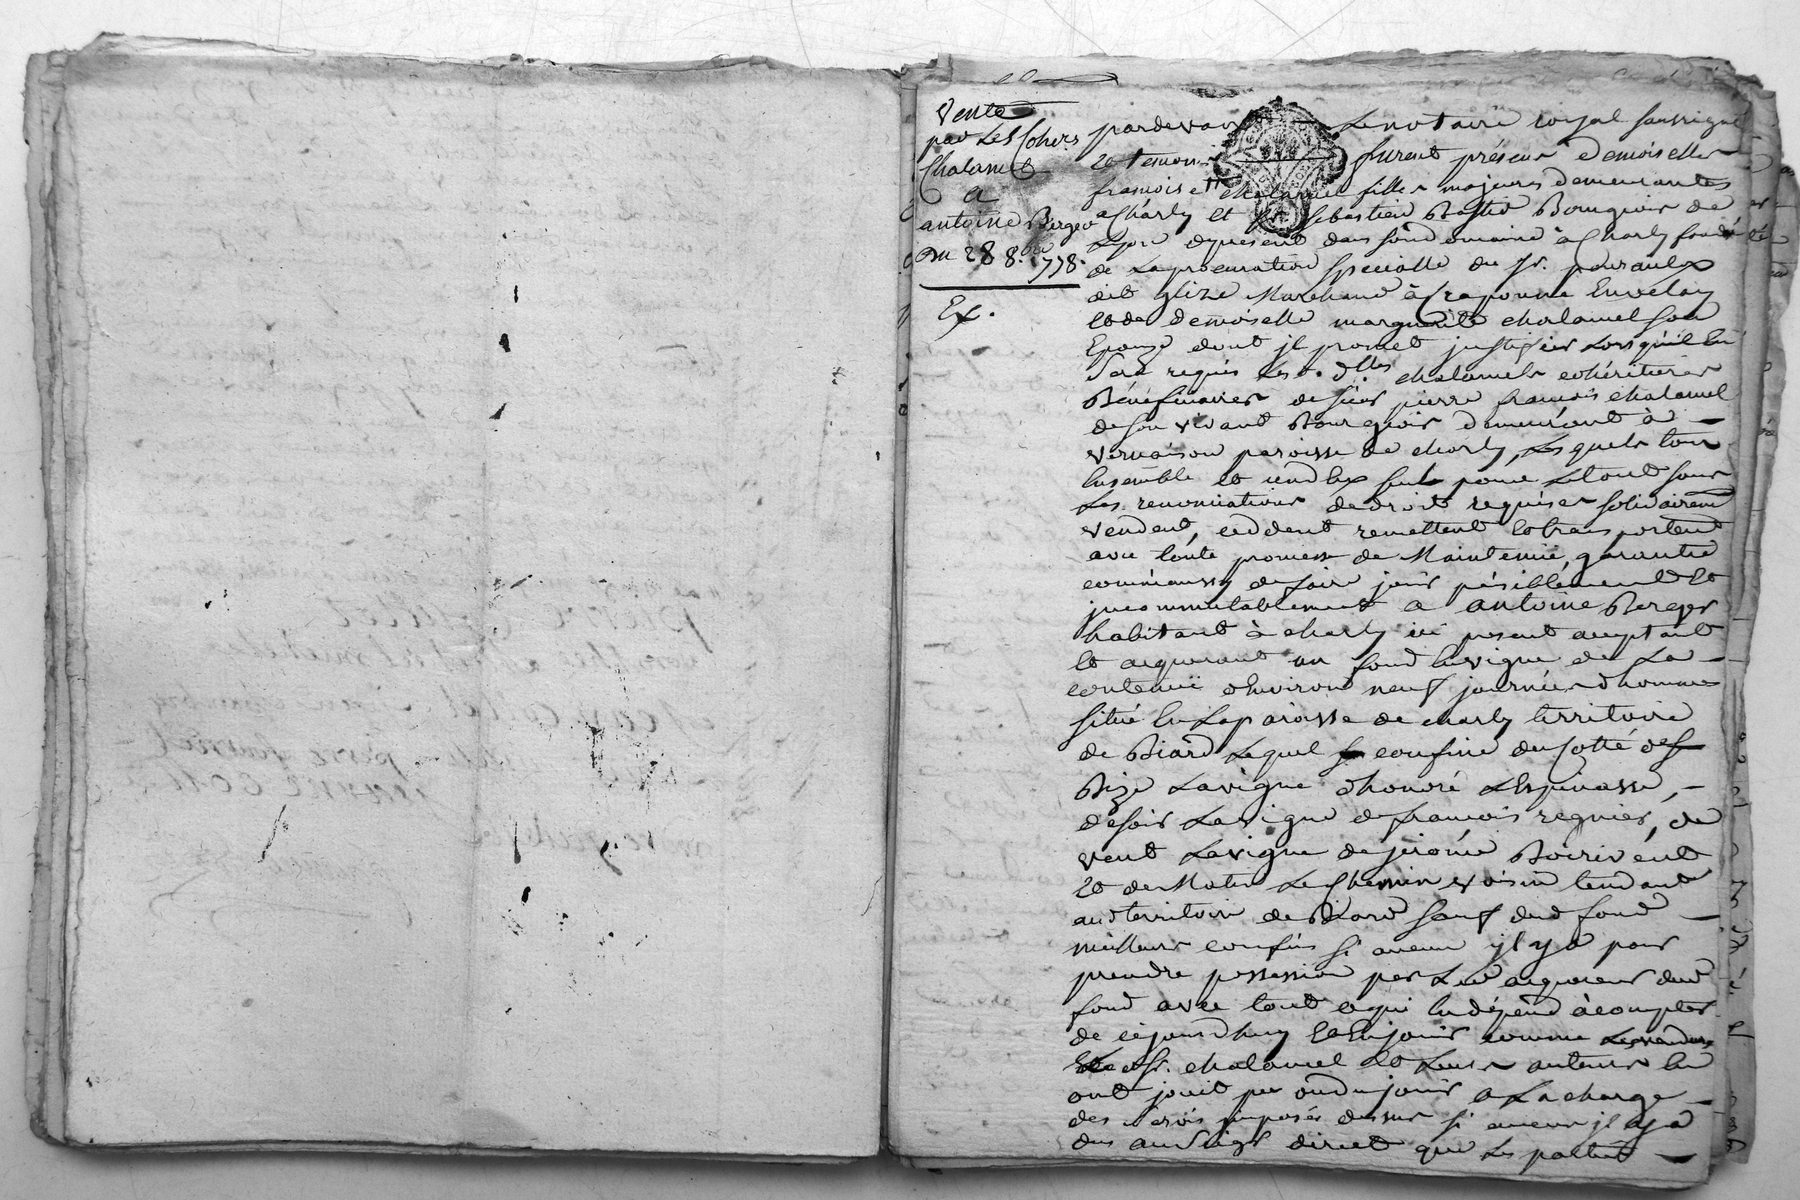 Vente
par Les Cohers
Chalamel
a
antoine Berger
du 28 8.bre 1778.
Ex.
pardevant Le notaire royal soussigné
et temoins furent présens demoiselles
francoise et chalamel filles majeures demeurantes
a Charly et Sr. Sebastien Bourgeois de
Lyon dypresent dans son domaine à Charly fondé
de La procuration specialle du Sr.
dit glize Marchand à Craponne Envelay
et de demoiselle marguerite chalamel son
Epouze dont jl promet justifier Lorsquil En
Sera requis Les d. dlles chalamels cohéritieres
Bénéficiaires de sieur pierre francois chalamel
de son vivant Bourgeois demeurant à
vernaison paroisse de charly, Lesquels tous
Ensemble et un deux seul pour Le tout sous
Les renonciations de droit requises solidairemt
vendent, ceddent remettent et transportent
avec toute promesse de Maintenue, garantie
comme aussy de faire jouir paisiblement et
jncommutablement a antoine Berger
habitant à charly ici present acceptant
et acquerant un fond En vigne de La
contenue d'Environ neuf journées d'hommes
situé En La paroisse de charly territoire
de Biard Lequel se confine du Cotté de
Bize La vigne d'honoré Lespinasse,
de soir La vigne de francois regnier, de
vent La vigne de jerome Boirivent
et de Matin Le Chemin voisin tendant
aud territoire de Biard sauf dud fond
meilleurs confins si aucun jl y a pour
prendre possession par Led acquereur dud
fond avec tout ce qui En dépend à compter
de cejourdhuy et En jouir comme Les vendeurs
Led Sr. chalamel et Leurs auteurs En
ont jouit pu ou du jouir a La charge
des servis jmposés dessus si aucun jl y a
dus au Seigr direct que Les parties